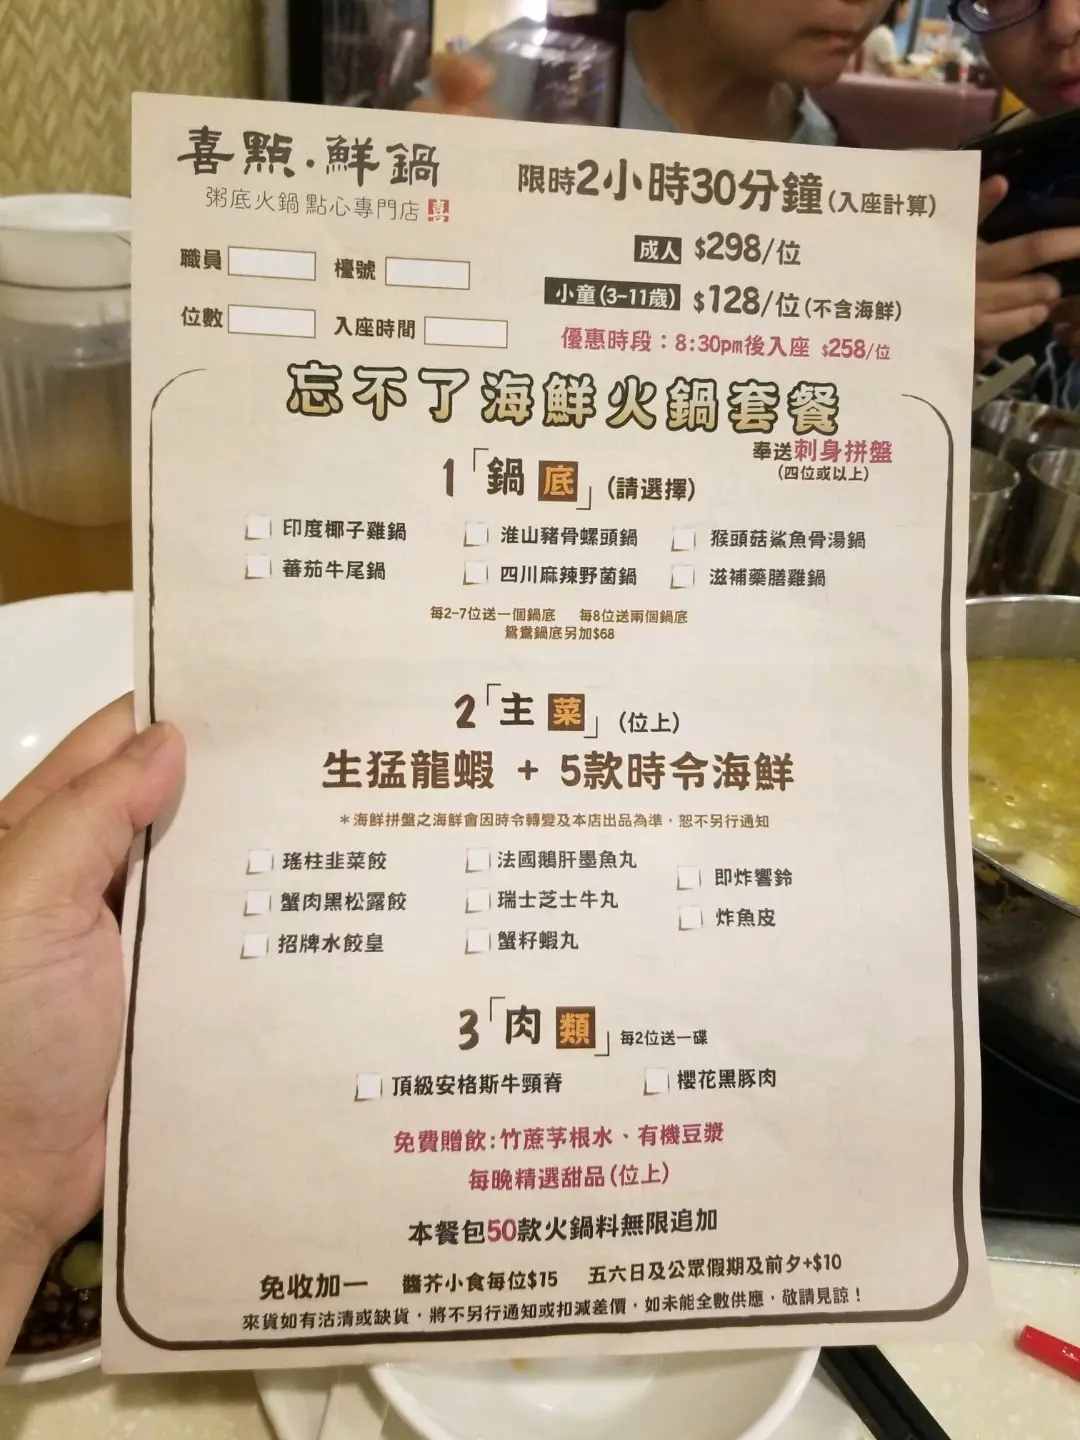 喜點·鮮鍋
粥底火鍋 點心專門店 喜
限時2小時30分鐘(入座計算)
成人 $298/位
小童(3-11歲) $128/位(不含海鮮)
優惠時段：8:30pm後入座 $258/位
職員 檯號
位數 入座時間
忘不了海鮮火鍋套餐
奉送刺身拼盤
(四位或以上)
1「鍋底」(請選擇)
印度椰子雞鍋 淮山豬骨螺頭鍋 猴頭菇鯊魚骨湯鍋
蕃茄牛尾鍋 四川麻辣野菌鍋 滋補藥膳雞鍋
每2-7位送一個鍋底 每8位送兩個鍋底
鴛鴦鍋底另加$68
2「主菜」(位上)
生猛龍蝦 + 5款時令海鮮
*海鮮拼盤之海鮮會因時令轉變及本店出品為準，恕不另行通知
瑤柱韭菜餃 法國鵝肝墨魚丸 即炸響鈴
蟹肉黑松露餃 瑞士芝士牛丸 炸魚皮
招牌水餃皇 蟹籽蝦丸
3「肉類」每2位送一碟
頂級安格斯牛頸脊 櫻花黑豚肉
免費贈飲:竹蔗茅根水、有機豆漿
每晚精選甜品(位上)
本餐包50款火鍋料無限追加
免收加一 醬芥小食每位$15 五六日及公眾假期及前夕+$10
來貨如有沽清或缺貨，將不另行通知或扣減差價，如未能全數供應，敬請見諒！